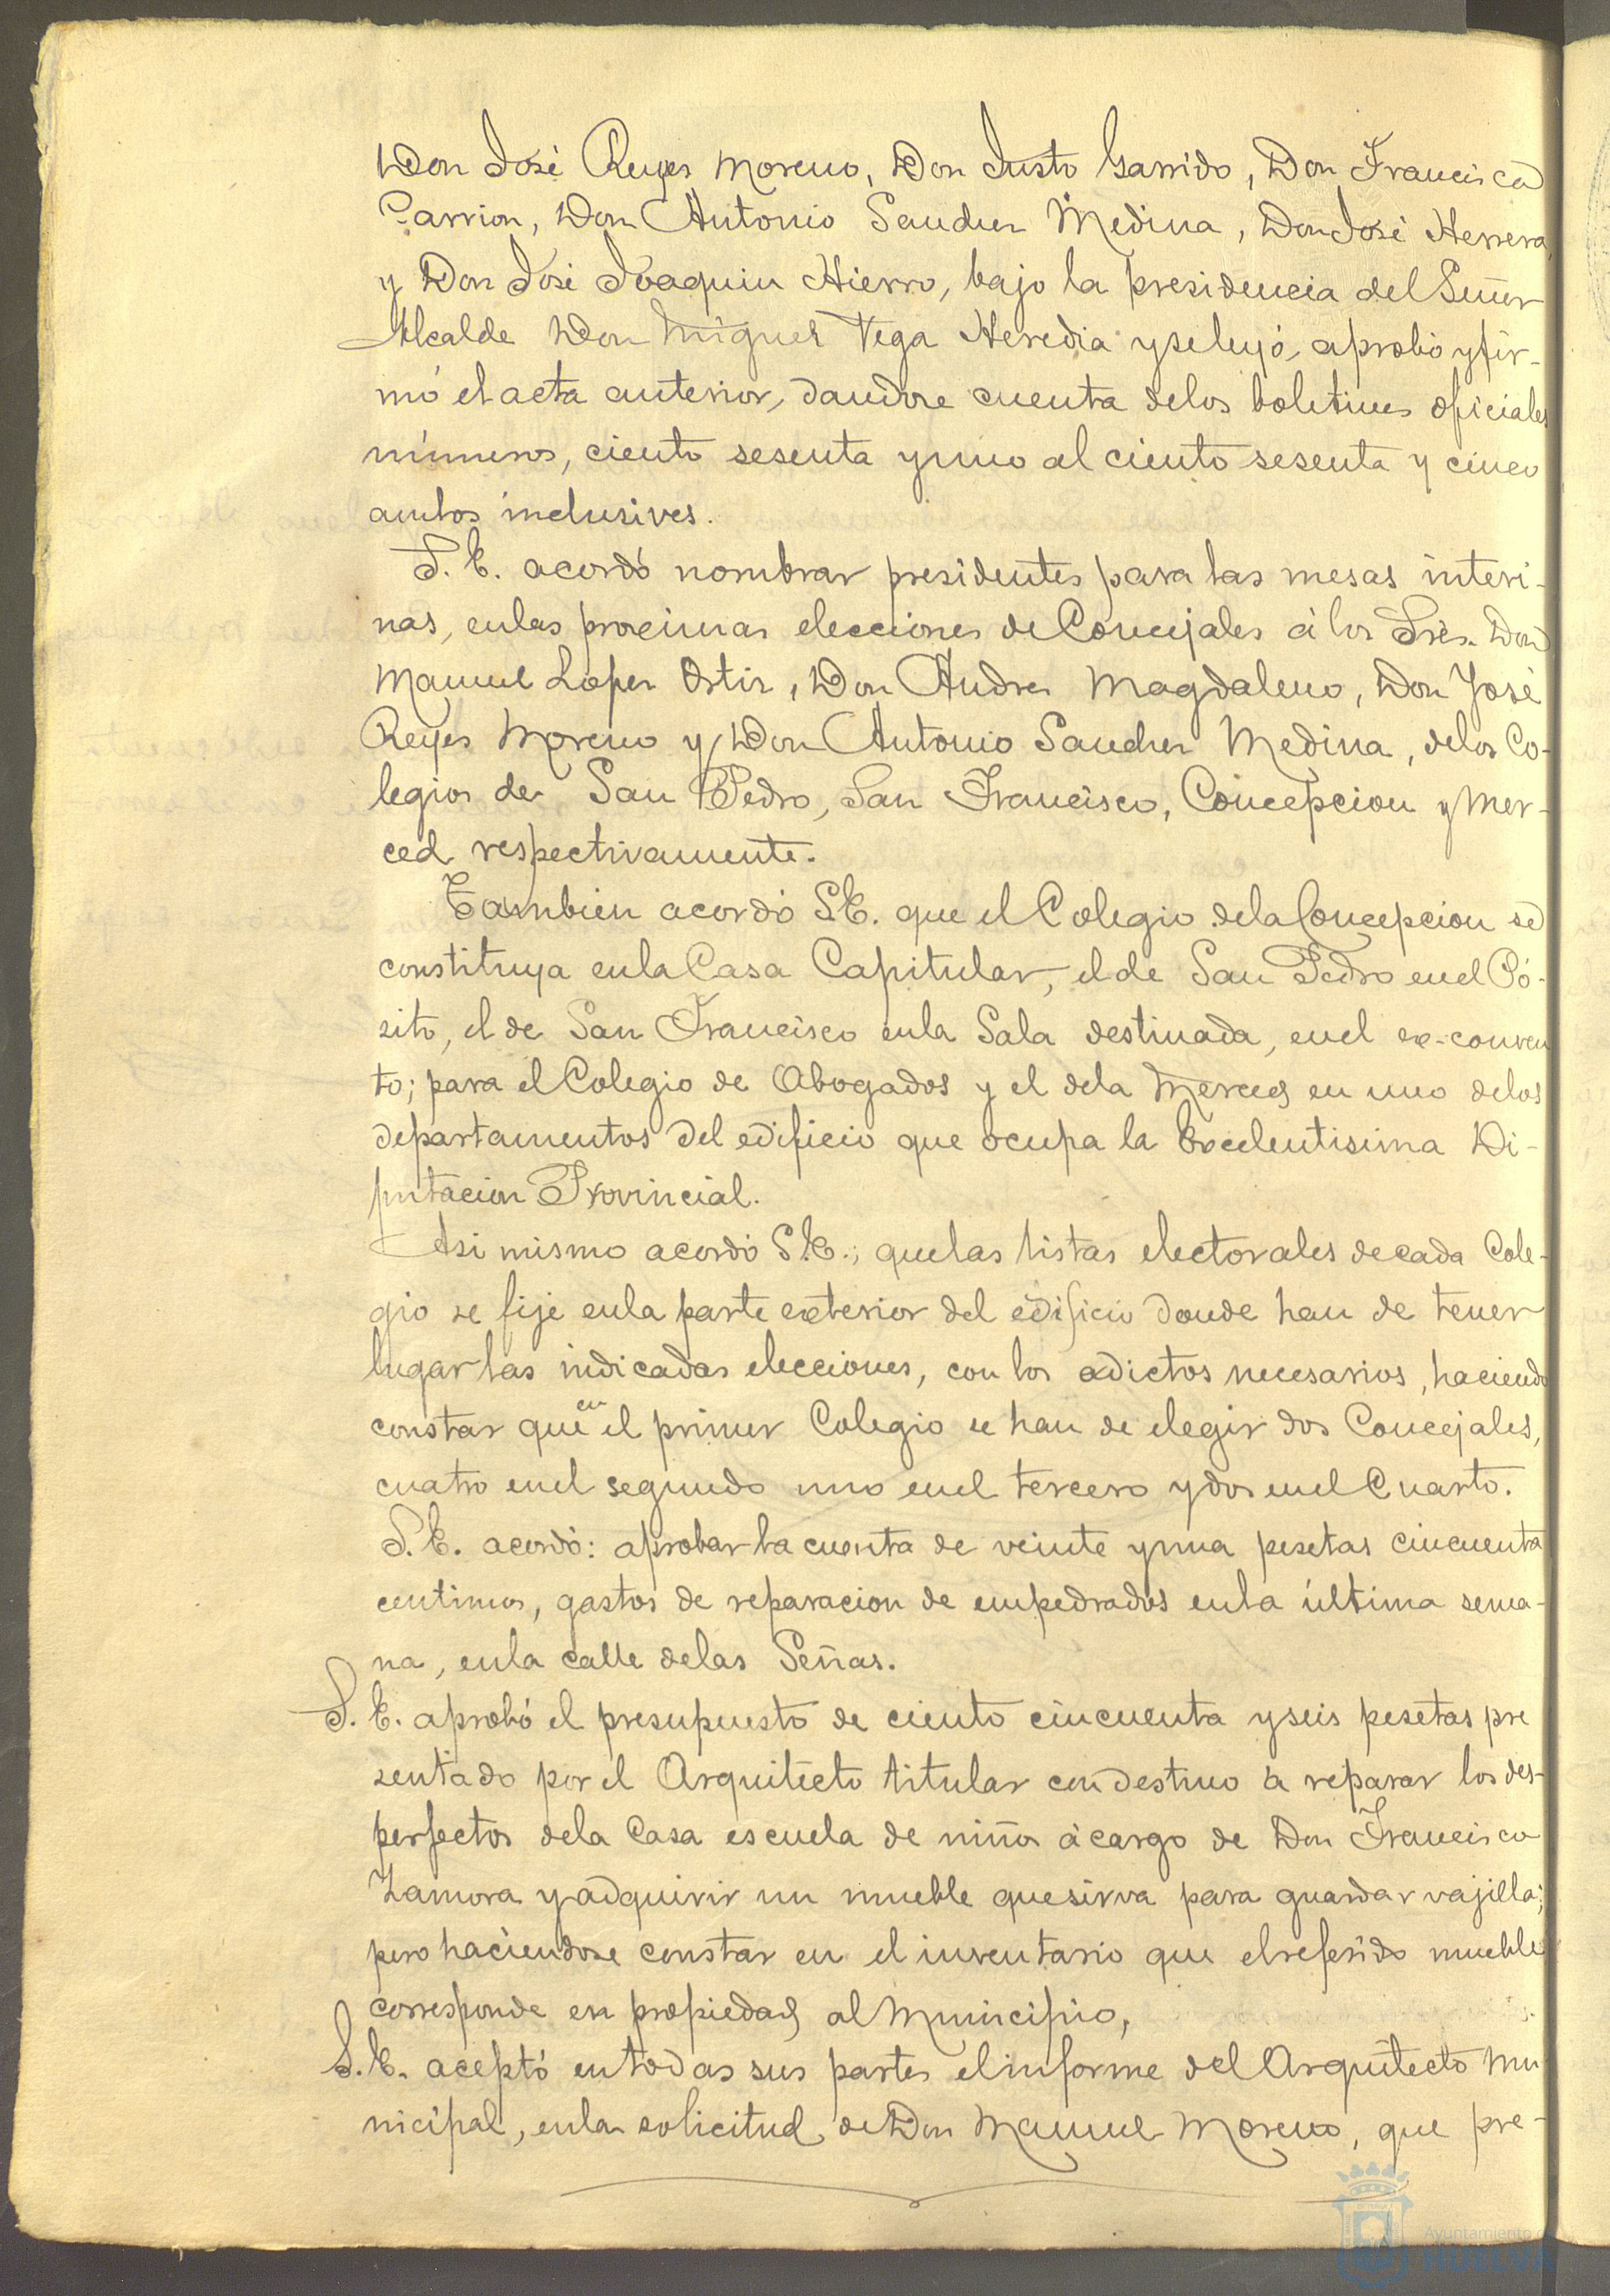 Don José Reyes Moreno, Don Justo Garrido, Don Francisco
Carrion, Don Antonio Sanchez Medina, Don José Herrera,
y Don José Joaquin Hierro, bajo la presidencia del Señor
Alcalde Don Miguel Vega Heredia y se leyó, aprobó y fir-
mó el acta anterior, dandose cuenta de los boletines oficiales
números, ciento sesenta y uno al ciento sesenta y cinco
ambos inclusives.
S. E. acordó nombrar presidentes para las mesas interi-
nas, en las proximas elecciones de Concejales á los Sres. Don
Manuel Lopez Ortiz, Don Andres Magdaleno, Don José
Reyes Moreno y Don Antonio Sanchez Medina, de los Co-
legios de San Pedro, San Francisco, Concepcion y Mer-
ced respectivamente.
Tambien acordó S.E. que el Colegio de la Concepcion se
constituya en la Casa Capitular, el de San Pedro en el Pó-
sito, el de San Francisco en la Sala destinada, en el ex-conven
to; para el Colegio de Abogados y el de la Merced en uno de los
departamentos del edificio que ocupa la Excelentisima Di-
putacion Provincial.
Asi mismo acordó S.E.; que las listas electorales de cada Cole-
gio se fije en la parte exterior del edificio donde han de tener
lugar las indicadas elecciones, con los edictos necesarios, haciendo
constar que en el primer Colegio se han de elegir dos Concejales,
cuatro en el segundo uno en el tercero y dos en el Cuarto.
S. E. acordó: aprobar la cuenta de veinte y una pesetas cincuenta
centimos, gastos de reparacion de empedrados en la última sema-
na, en la calle de las Señas.
S. E. aprobó el presupuesto de ciento cincuenta y seis pesetas pre
sentado por el Arquitecto titular con destino a reparar los des-
perfectos de la Casa escuela de niños á cargo de Don Francisco
Zamora y adquirir un mueble que sirva para guardar vajilla;
pero haciendose constar en el inventario que el referido mueble
corresponde en propiedad al Municipio,
S. E. aceptó en todas sus partes el informe del Arquitecto mu
nicipal, en la solicitud de Don Manuel Moreno, que pre-
Ayuntamiento de
HUELVA